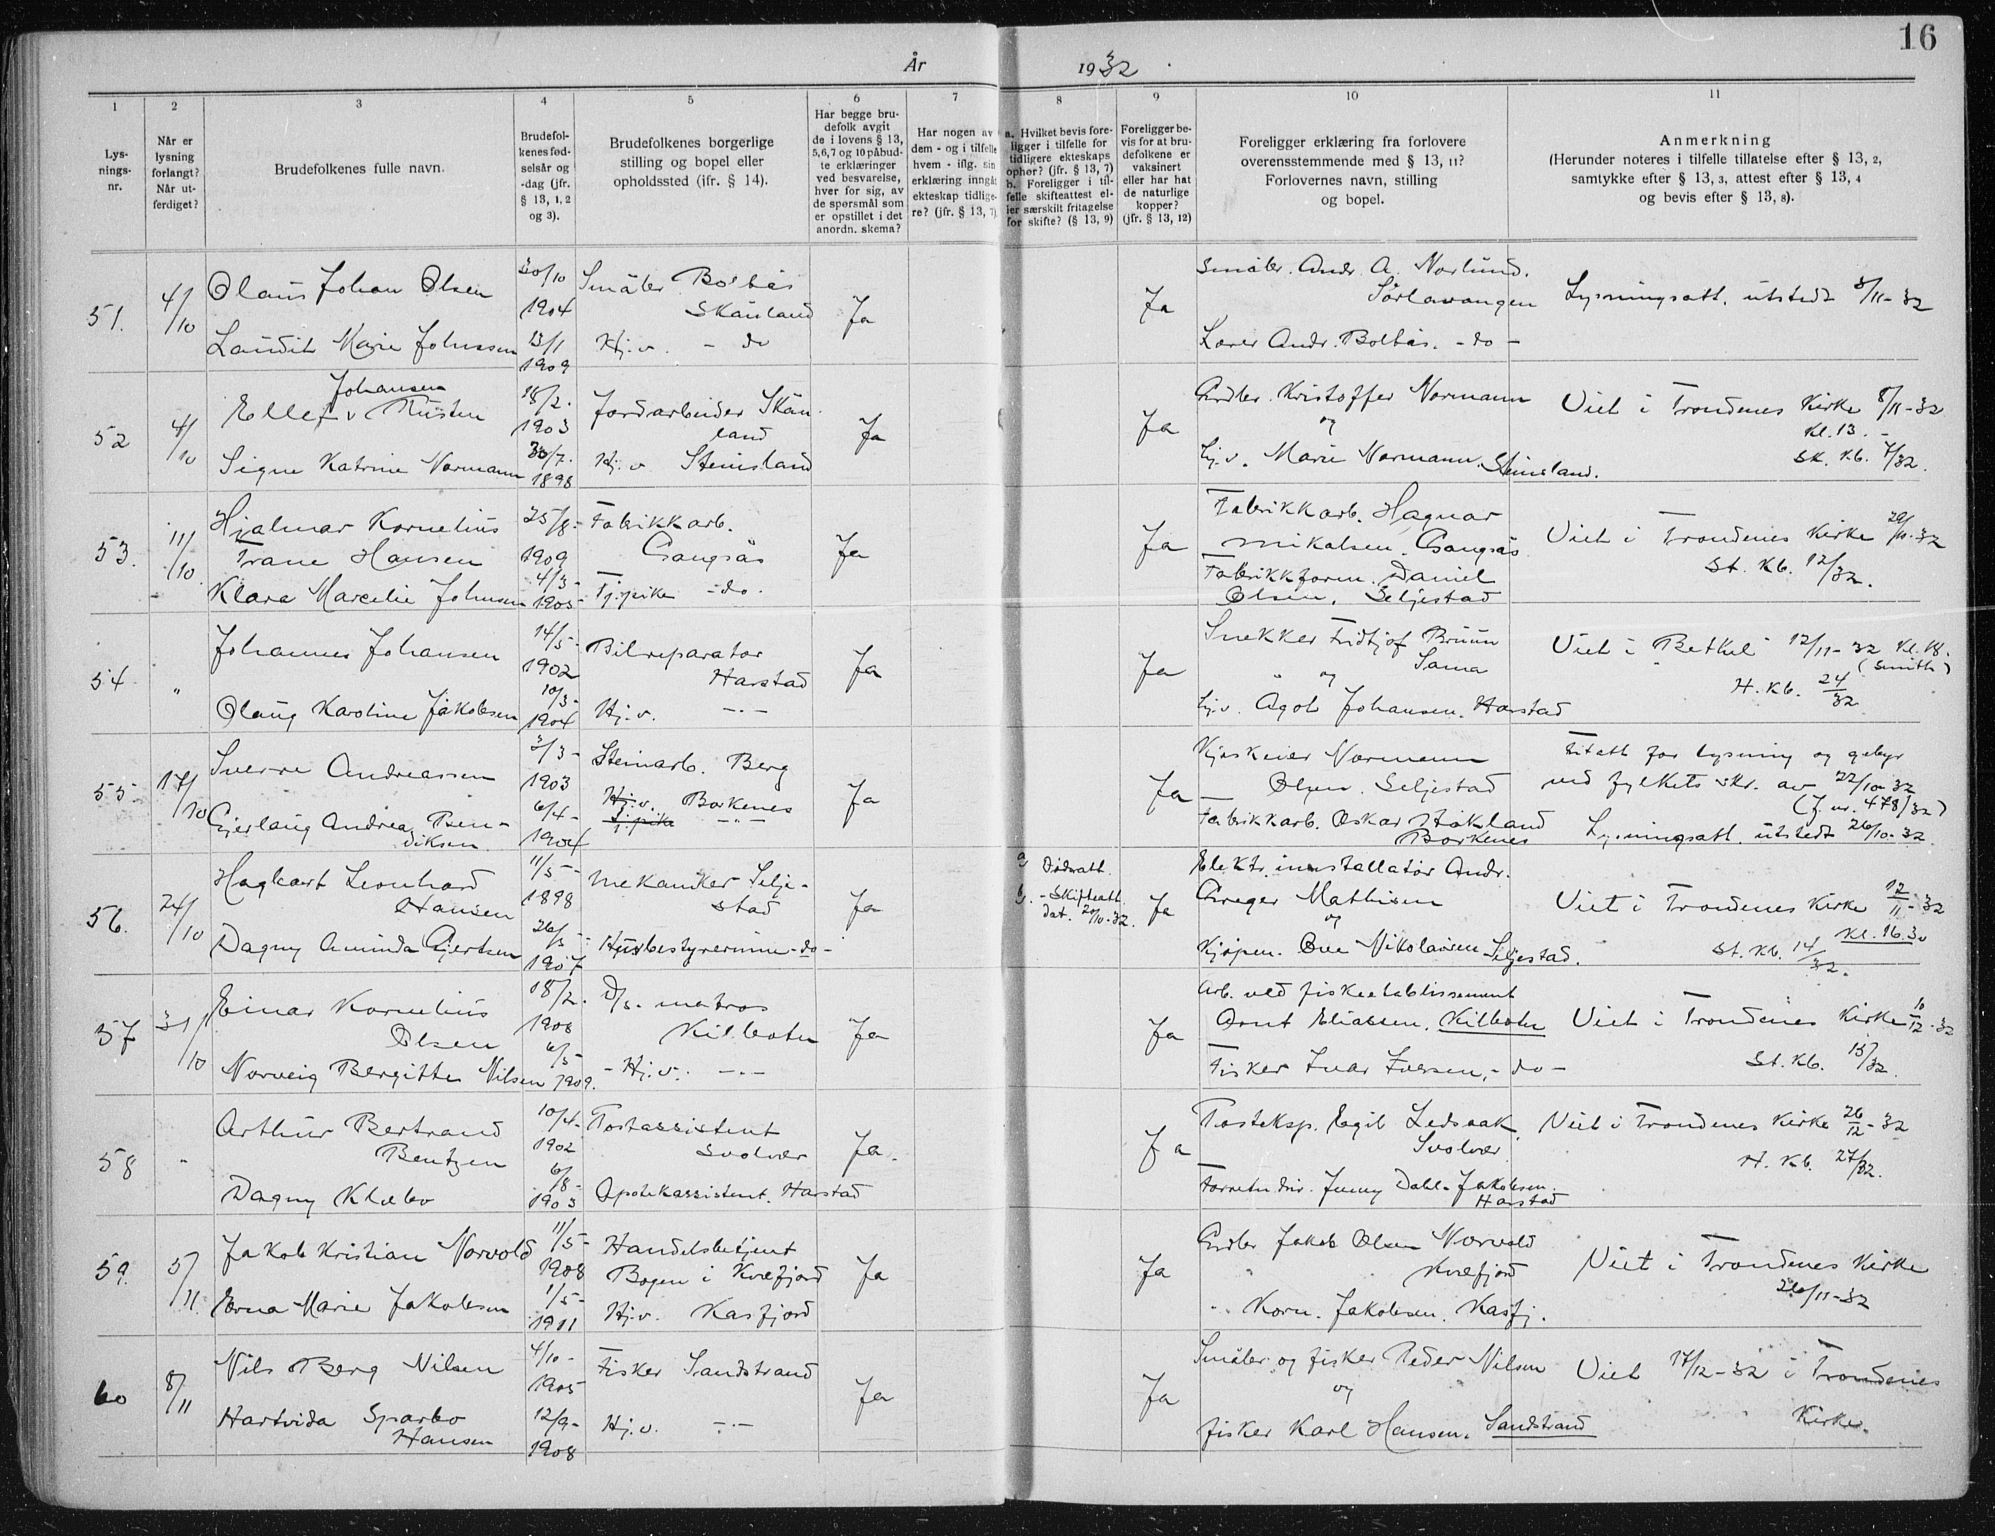 16
År 1932
1 2 3 4 5 6 7 8 9 10 11
Lys-
nings-
nr.
Når er
lysning
forlangt?
Når ut-
ferdiget?
Brudefolkenes fulle navn.
Brudefol-
kenes fød-
selsår og
-dag (jfr.
§ 13, 1, 2
og 3).
Brudefolkenes borgerlige
stilling og bopel eller
opholdssted (ifr. § 14).
Har begge bru-
defolk avgit
de i lovens § 13,
5,6,7 og 10 påbud-
te erklæringer
ved besvarelse,
hver for sig, av
de spørsmål som
er opstillet i det
anordn. skema?
Har nogen av
dem - og i tilfelle
hvem - iflg. sin
erklæring inngåt
ekteskap tidlige-
re? (jfr. § 13, 7)
a. Hvilket bevis fore-
ligger i tilfelle for
tidligere ekteskaps
ophør? (jfr. § 13, 7)
b. Foreligger i til-
felle skifteattest el-
ler særskilt fritagelse
for skifte? (§ 13, 9)
Foreligger be-
vis for at bru-
defolkene er
vaksinert
eller har hat
de naturlige
kopper?
(jfr. § 13, 12)
Foreligger erklæring fra forlovere
overensstemmende med § 13, 11?
Forlovernes navn, stilling
og bopel.
Anmerkning
(Herunder noteres i tilfelle tillatelse efter § 13, 2,
samtykke efter § 13, 3, attest efter § 13, 4
og bevis efter § 13, 8).
51. 4/10
Olaus Johan Olsen 30/10 1904 Småbr. Boltås
Skånland Ja
Laudit Marie Johnssen 13/1 1909 Hj.v. - do
Ja
Småbr. Andr. A. Norlund.
Sørlavangen
Lærer Andr. Boltås. - do -
Lysningsatt. utstedt 8/11-32
52 4/10
Johansen
Ellef v Rusten 18/2. 1903 Jordarbeider Skån
land Ja
Signe Katrine Normann 30/7. 1898 Hj.v. Steinsland
Ja
Grdbr. Kristoffer Normann
og
Hj.v. Marie Normann. Steinsland.
Viet i Trondenes Kirke 8/11-32
Kl. 13. -
Sk. Kb. 7/32.
53. 11/10.
Hjalmar Kornelius 25/8- 1909 Fabrikkarb.
Trane Hansen Gangsås Ja
Klara Marcelie Johnsen 4/3- 1905 Tj.pike - do.
Ja
Fabrikkarb. Hagnar
Mikalsen. Gangsås
Fabrikkform. Daniel
Olsen, Seljestad
Viet i Trondenes Kirke 29/11-32
St. Kb. 12/32.
54 "
Johannes Johansen 14/5- 1902 Bilreparatør
Harstad Ja
Olaug Karoline Jakobsen 10/3- 1904 Hj.v. -"-
Ja
Snekker Fridtjof Bruun
Sama
" og
Hj.v. Agot Johansen. Harstad
Viet i Betkel 12/11-32 Kl. 18.
(Smith)
H. Kb. 24/32
55 17/10
Sverre Andreassen 3/3- 1903 Steinarb. Berg
Hj.v. Borkenes Ja
Gjerlaug Andrea Ben-
diksen 6/4- 1904 Tj.pike -"-
Ja
Kjøskeier Normann
Olsen. Seljestad
Fabrikkarb. Oskar Hokland
Borkenes
Fritatt for lysning og gebyr
ved fylkets skr. av 22/10-32
(J. nr. 478/32)
Lysningsatt. utstedt 26/10-32.
56. 24/10
Hagbart Leonhard 11/5- 1898 Mekaniker Selje-
Hansen stad Ja
Dagny Aminda Gjertsen 26/5- 1907 Husbestyrerinne - do -
a. Dødsatt.
b. - Skifteatt.
dat. 20/10-32.
Ja
Elektr. innstallatør Andr.
Greger Mathisen
og
Kjøpm. Ove Nikolaisen Seljestad.
Viet i Trondenes Kirke 12/11-32
Kl. 16.30
St. Kb. 14/32.
57 31/10
Einar Kornelius 18/2. 1908 D/s. matros
Olsen Kilbotn Ja
Norveig Bergitte Nilsen 6/5- 1909. - Hj.v. -"-
Ja
Arb. ved fiskeetablissement
Arnt Eliassen, Kilbotn
Fisker Ivar Iversen, - do -
Viet i Trondenes Kirke 10/12-32
St. Kb. 15/32.
58 "
Arthur Bertrand 10/4- 1902 Postassistent
Bentzen Svolvær Ja.
Dagny Klæbo 6/8- 1903 Apotekassistent. Harstad
Ja
Posteksp. Egil Ledsaak.
Svolvær
Forretn.driv. Jenny Dahl-Jakobsen.
Harstad
Viet i Trondenes Kirke 26/12-32
H. Kb. 27/32.
59. 5/11.
Jakob Kristian Norvold 11/5- 1908 Handelsbetjent
Bogen i Kvæfjord Ja
Erna Marie Jakobsen 1/5- 1911 Hj.v. Kasfjord
Ja
Grdbr Jakob Olsen Norvold
" Kvæfjord
" Korn. Jakobsen. Kasfj.
Viet i Trondenes Kirke
26/11-32
60 8/11
Nils Berg Nilsen 4/10- 1905 Fisker Sandstrand
Ja
Hartvida Sparbo
Hansen 12/9- 1908 Hj.v. -"-
Ja
Småbr. og fisker Peder Nilsen
og
fisker Karl Hansen. Sandstrand
Viet 17/12-32 i Trondenes
Kirke.